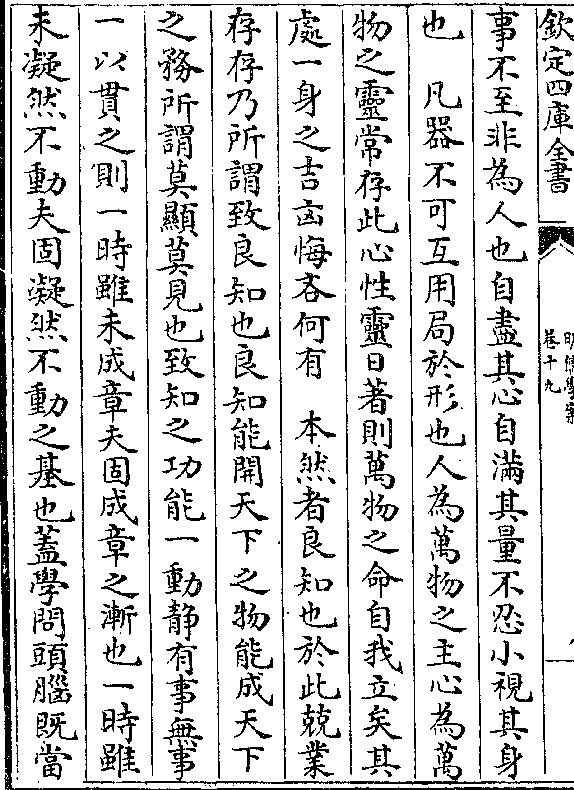 欽定四庫全書
明儒學案
卷十九
事不至非為人也自盡其心自滿其量不忍小視其身
也　凡器不可互用局於形也人為萬物之主心為萬
物之靈常存此心性靈日著則萬物之命自我立矣其
處一身之吉凶悔吝何有　本然者良知也於此兢業
存存乃所謂致良知也良知能開天下之物能成天下
之務所謂莫顯莫見也致知之功能一動靜有事無事
一以貫之則一時雖未成章夫固成章之漸也一時雖
未凝然不動夫固凝然不動之基也蓋學問頭腦既當